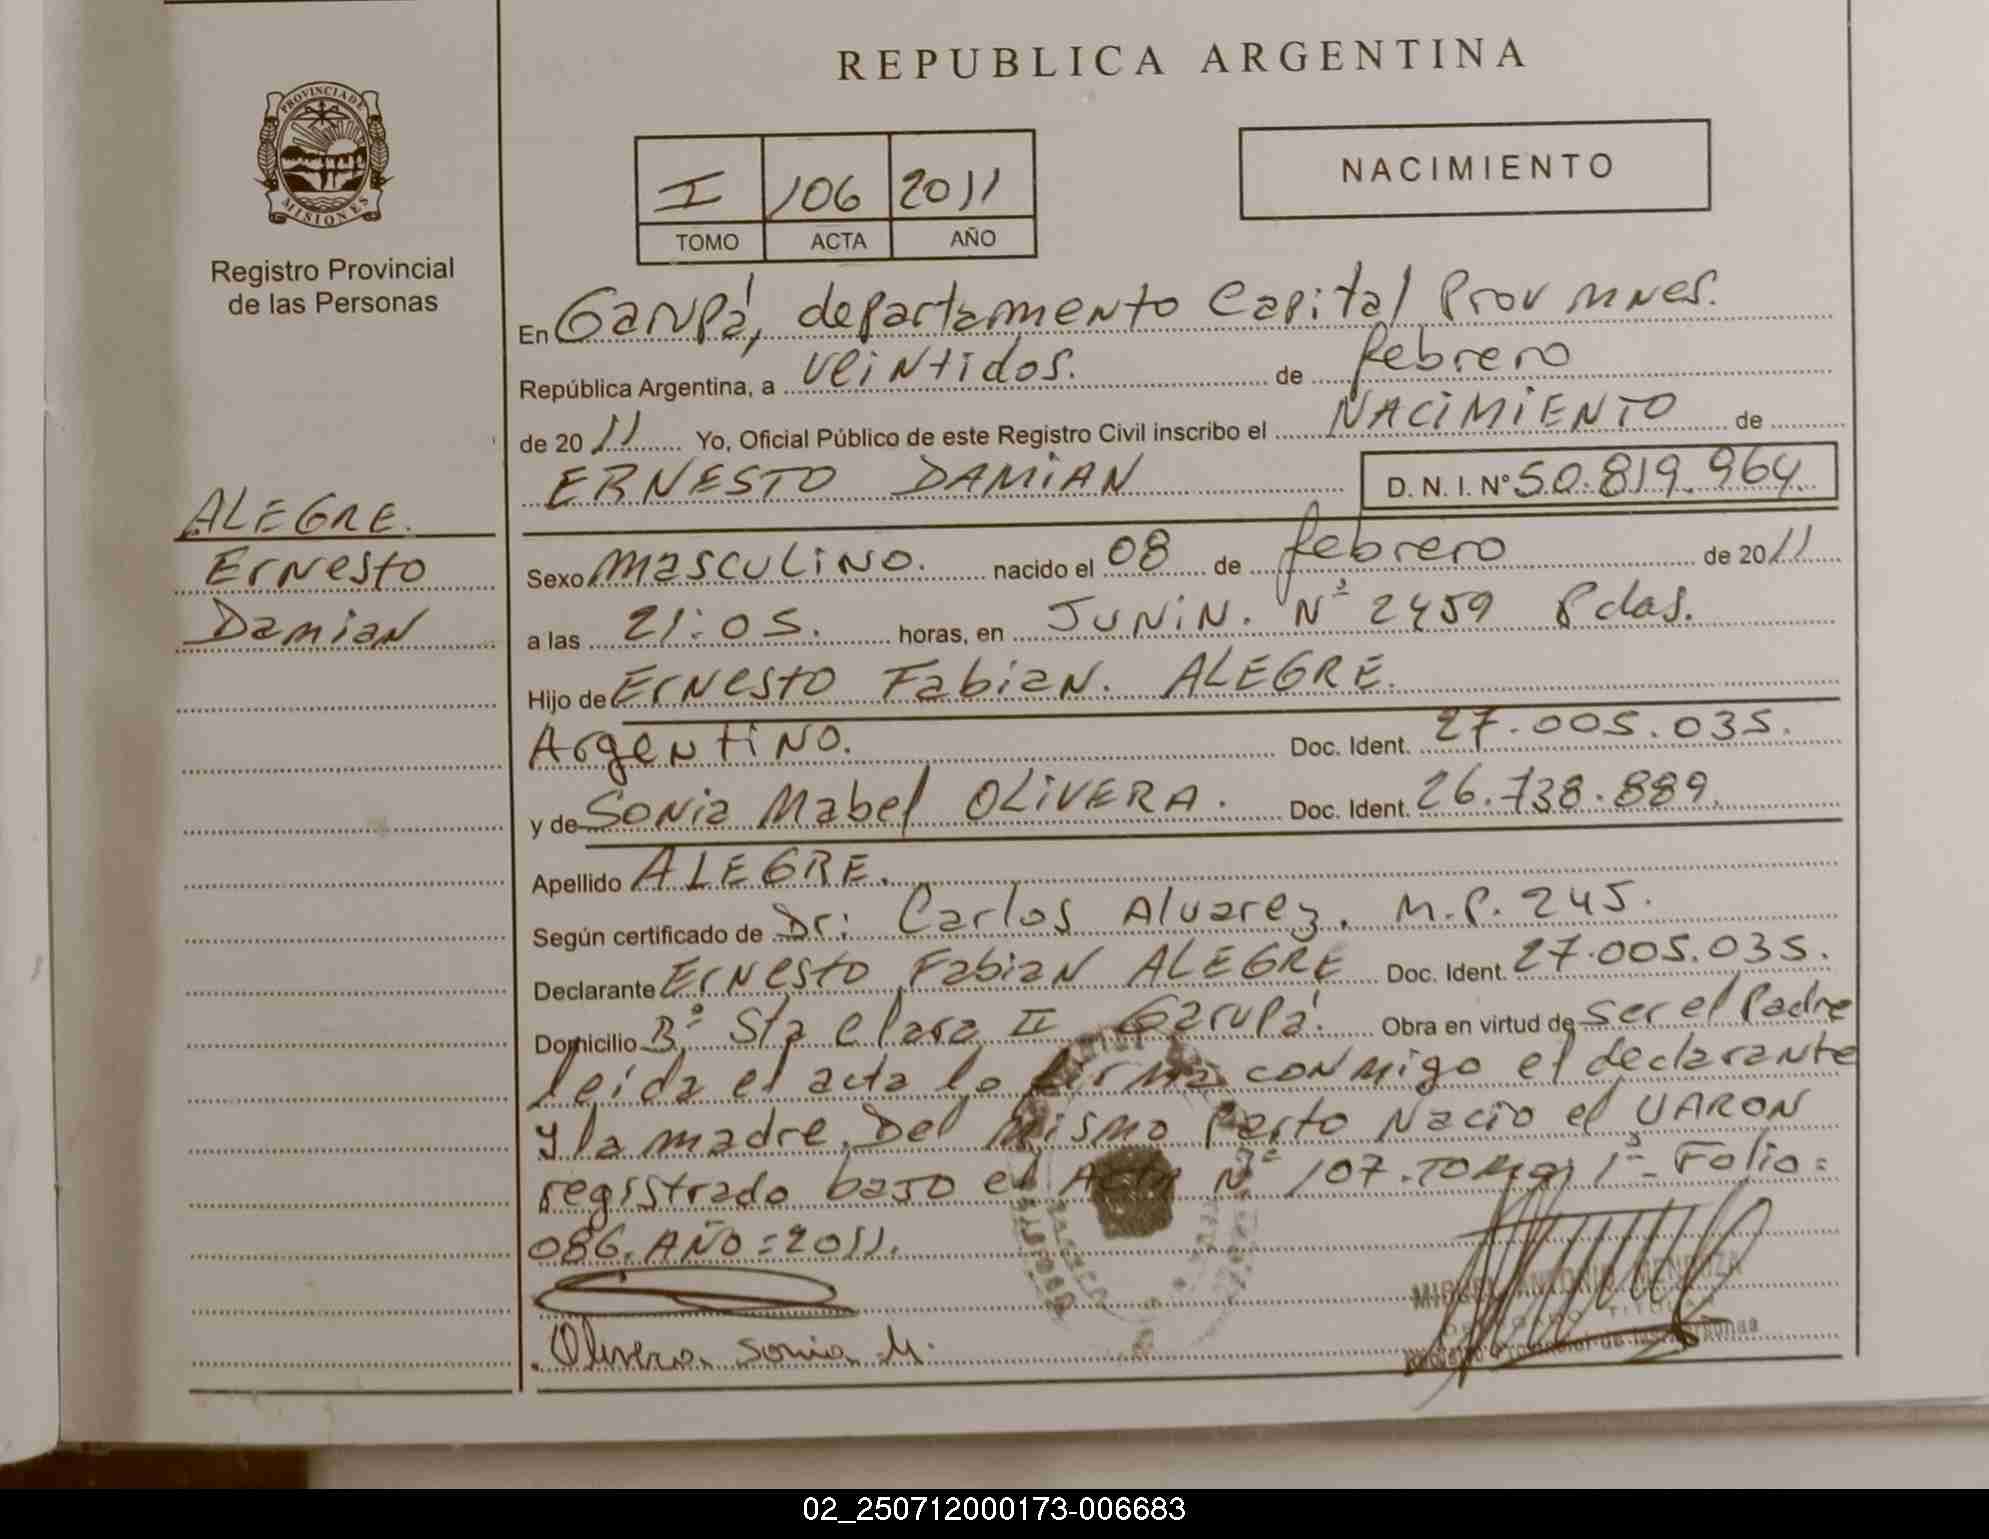 REPUBLICA ARGENTINA
PROVINCIA DE
MISIONES
Registro Provincial
de las Personas
I 106 2011
TOMO ACTA AÑO
NACIMIENTO
En Garupá, departamento Capital Prov Mnes.
República Argentina, a veintidos. de febrero
de 2011 Yo, Oficial Público de este Registro Civil inscribo el NACIMIENTO de
ERNESTO DAMIAN D. N. I. N° 50.819.964
ALEGRE.
Ernesto
Damian
Sexo masculino. nacido el 08 de febrero de 2011
a las 21:05. horas, en JUNIN. N° 2459 Pdas.
Hijo de Ernesto Fabian. ALEGRE.
Argentino. Doc. Ident. 27.005.035.
y de Sonia Mabel OLIVERA. Doc. Ident. 26.738.889.
Apellido ALEGRE.
Según certificado de Dr: Carlos Alvarez. M.P. 245.
Declarante Ernesto Fabian ALEGRE Doc. Ident. 27.005.035.
Domicilio B° Sta Clara II Garupá. Obra en virtud de ser el Padre
leida el acta lo firma conmigo el declarante
y la madre. Del mismo Parto Nacio el VARON
registrado bajo el Acta N° 107. Tomo: 1°- Folio:
086. AÑO: 2011.
MIGUEL ANTONIO MENDOZA
TITULAR
Registro Provincial de las Personas
Olivera Sonia M.
02_250712000173-006683